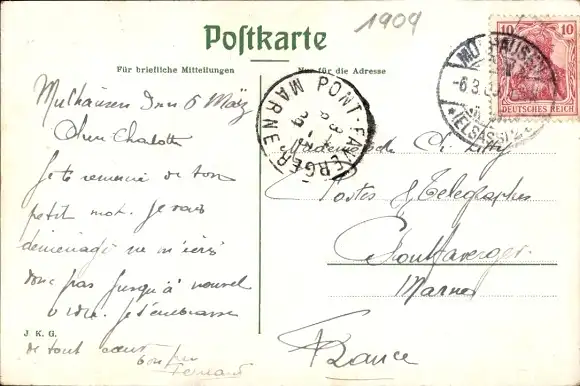 1909
Postkarte
Für briefliche Mitteilungen
Nur für die Adresse
10 10
DEUTSCHES REICH
MÜLHAUSEN
-6.3.09
(ELSASS)
PONT-FAVERGER
MARNE
Mulhausen 6 März
Chère Charlotte
Je te remercie de ton
petit mot. Je vais
déménager ne m'écris
donc pas jusqu'à nouvel
ordre. Je t'embrasse
de tout cœur
ton
Fernand
J. K. G.
Mademoiselle Ch.
Postes & Télégraphes
Pontfaverger
Marne
France